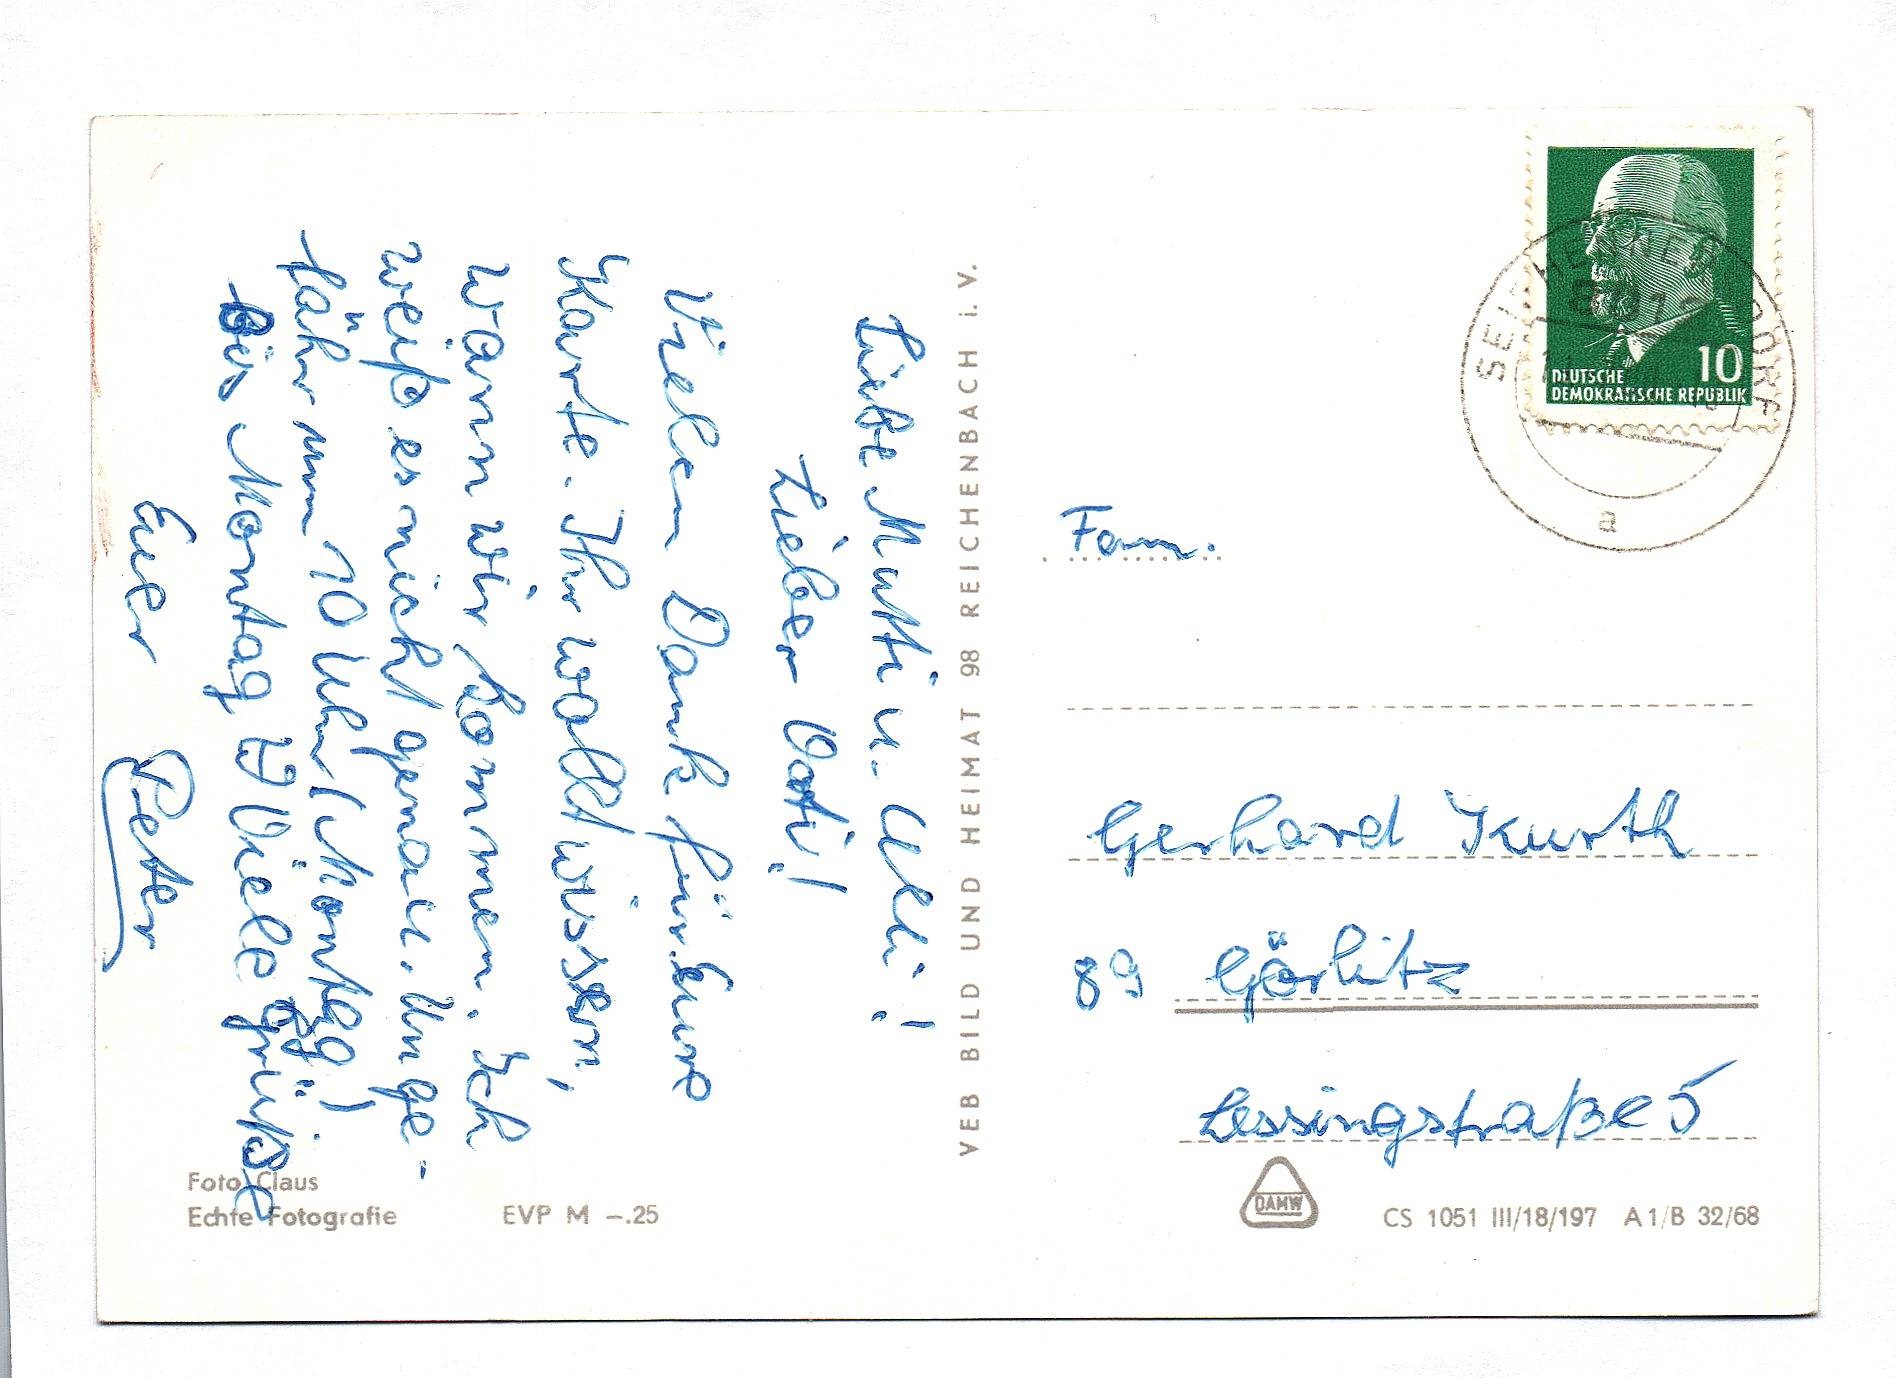 Liebe Mutti u. Ulli!
Lieber Vati!
Vielen Dank für Eure
Karte. Ihr wollt wissen,
wann wir kommen. Ich
weiß es nicht genau. Unge-
fähr um 10 Uhr (Montag)!
Bis Montag
Viele Grüße
Euer Peter
Foto Claus
Echte Fotografie
EVP M –.25
VEB BILD UND HEIMAT 98 REICHENBACH i. V.
10
DEUTSCHE
DEMOKRATISCHE REPUBLIK
SEIFHENNERSDORF
a
Fam.
Gerhard Kurth
89 Görlitz
Lessingstraße 5
DAMW
CS 1051 III/18/197 A 1/B 32/68